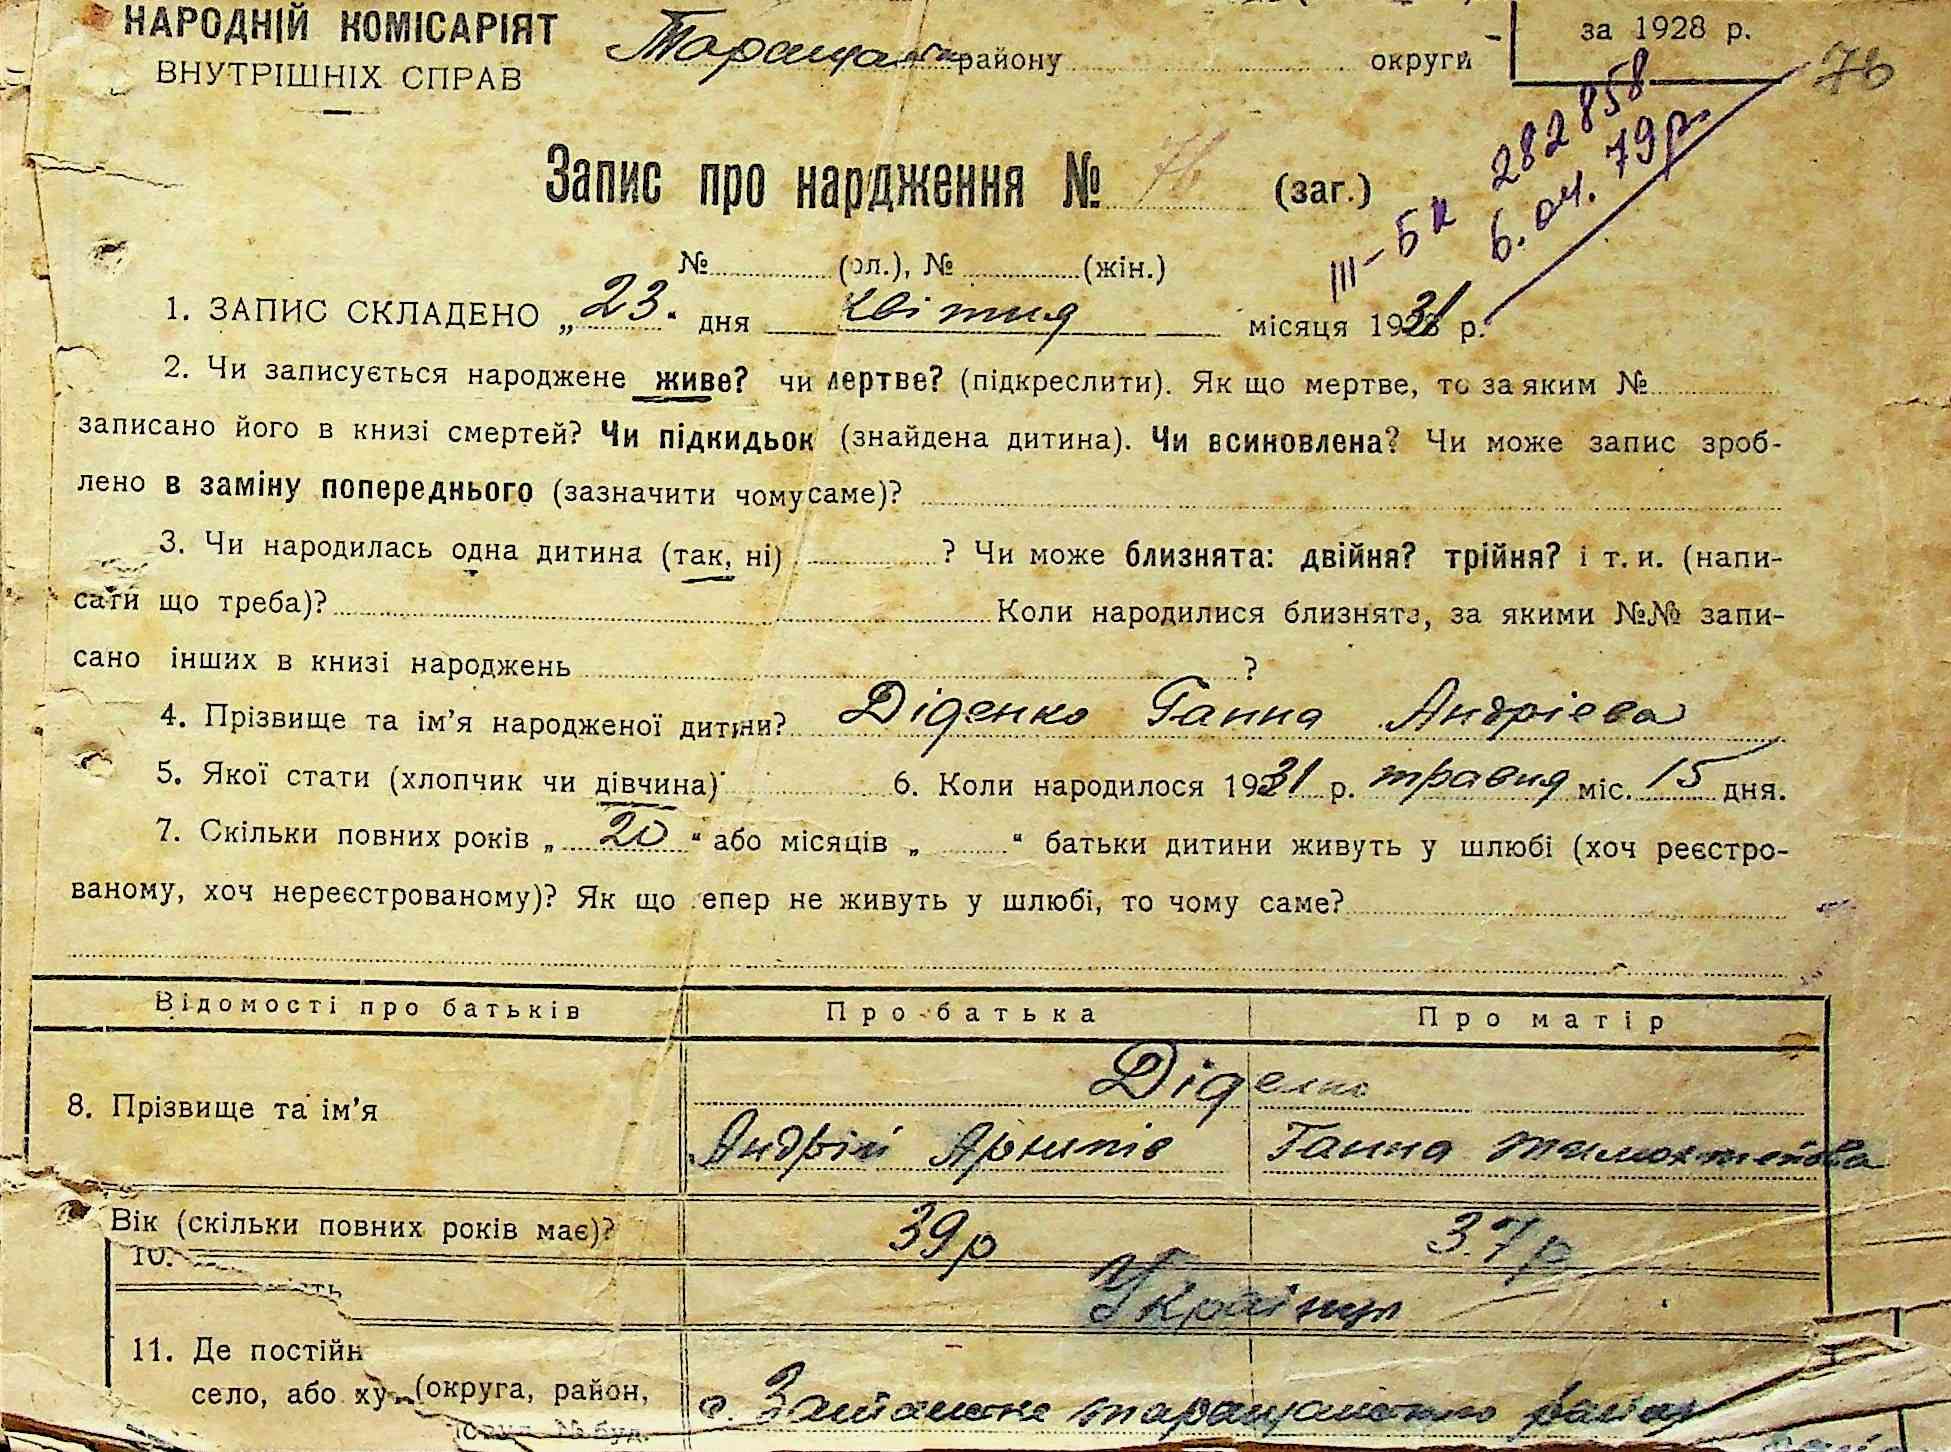 НАРОДНІЙ КОМІСАРІЯТ
ВНУТРІШНІХ СПРАВ
району округи
за 1928 р.
76
282 858
III-БК 6. 04. 79 р.
Запис про нардження № 76 (заг.)
№ (ол.), № (жін.)
1. ЗАПИС СКЛАДЕНО „23“ дня квітня місяця 1931 р.
2. Чи записується народжене живе? чи мертве? (підкреслити). Як що мертве, то за яким №
записано його в книзі смертей? Чи підкидьок (знайдена дитина). Чи всиновлена? Чи може запис зроб-
лено в заміну попереднього (зазначити чому саме)?
3. Чи народилась одна дитина (так, ні) ? Чи може близнята: двійня? трійня? і т. и. (напи-
сати що треба)? Коли народилися близнята, за якими №№ запи-
сано інших в книзі народжень ?
4. Прізвище та ім'я народженої дитини? Діденко Ганна Андрієва
5. Якої стати (хлопчик чи дівчина) 6. Коли народилося 1931 р. травня міс. 15 дня.
7. Скільки повних років „20“ або місяців „ “ батьки дитини живуть у шлюбі (хоч реєстро-
ваному, хоч нереєстрованому)? Як що тепер не живуть у шлюбі, то чому саме?
Відомості про батьків Про батька Про матір
Діденко
8. Прізвище та ім'я
Андрій Архипів Ганна Тимохтеєва
Вік (скільки повних років має)? 39 р 37 р
10.
Українці
11. Де постійн
село, або ху (округа, район,
с. таращанського району
№ буд.